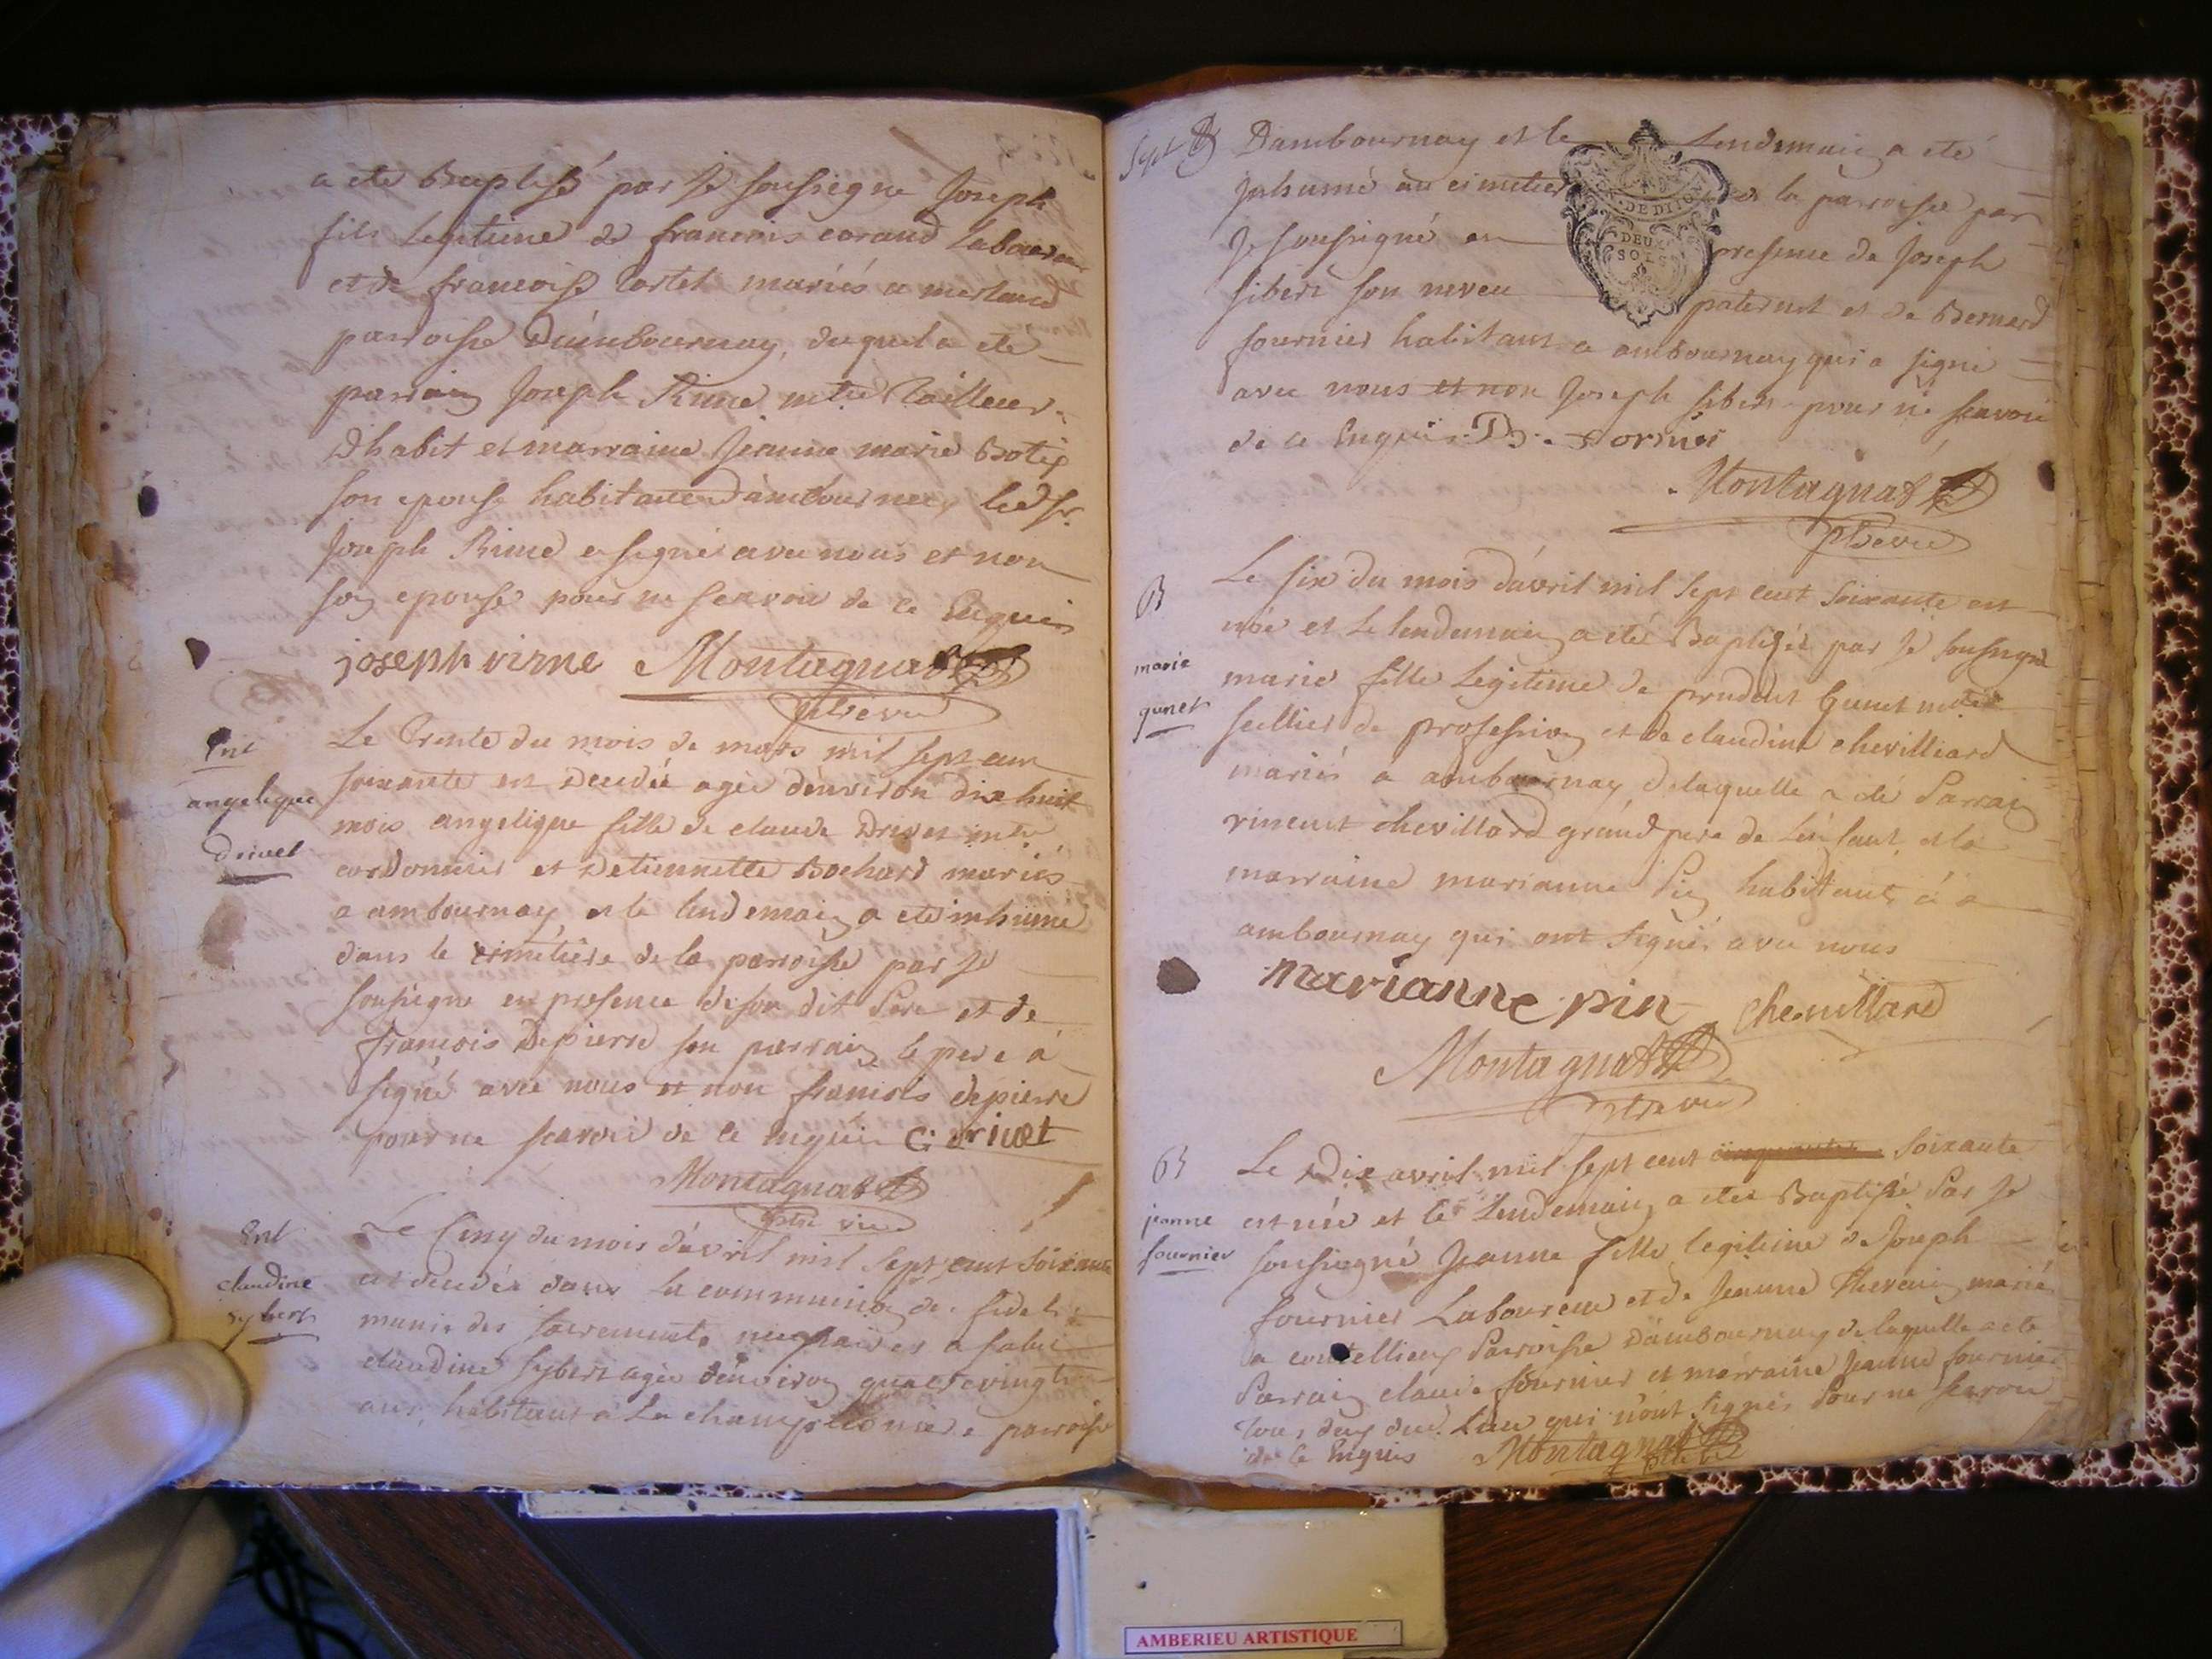 a ete Baptisé par Je soussigne Joseph
fils Legitime de francois corand Laboureur
et de francoise Cortet mariés a merland
parroisse Dámbournay, duquel a ete
parrain Joseph Rime mtre Tailleur
Dhabit et marraine Jeanne marie
son epouse habitans Dámbournay led Sr.
Joseph Rime a signé avec nous et non
son epouse pour ne scavoir de ce Enquis
joseph virne Montagnat
ptre vic
Ent
angelique
drivet
Le Trente du mois de mars mil sept cent
soixante est Decedée agée dénviron dix huit
mois angelique fille de claude Drivet mtre
cordonnier et Detiennette Bochard mariés
a ambournay et le lendemain a ete inhumé
dans le cimétière de la parroisse par Je
soussigne en presence de son dit Pere et de
francois Depierre son parrain le pere á
signé avec nous et non francois depierre
pour ne scavoir de ce enquis C: drivet
Montagnat
ptre vic
Ent
claudine
sybert
Le Cinq du mois dávril mil sept cent soixante
est decedée dans la communion des fideles
munie des sacrements a salut
claudine sybert agée dénviron quatre vingt
ans, habitant a La parroisse
Sept
Dambournay et le lendemain a eté
Inhumé au cimetier de la parroisse par
DE DIJON
Je soussigné en presence de Joseph
DEUX
SOLS
sibert son neveu paternel et de Bernard
fournier habitant a ambournay qui a signé
avec nous et non Joseph sibert pour ne scavoir
de ce Enquis. B. Fornier
Montagnat
ptre vic
B
marie
gunet
Le six du mois dávril mil sept cent soixante est
née et Le lendemain a eté Baptisée par Je soussigné
marie fille Legitime de prudent Gunet mtre
sellier de profession et de claudine chevilliard
mariés a ambournay, delaquelle a été Parrain
vincent chevillard grand pere de Lénfant, et la
marraine marianne Pin habitant á a
ambournay qui ont signés avec nous
marianne pin chevillard
Montagnat
ptre vic
B
jeanne
fournier
Le Dix avril mil sept cent cinquante soixante
est née et le Lendemain a eté Baptisé Par Je
soussigné Jeanne fille legitime de Joseph
fournier Laboureur et de Jeanne Thevenin mariés
a Parroisse Dámbournay delaquelle a ete
Parrain claude fournier et marraine Jeanne fournier
tous deux dud. Lieu qui n'ont signés Pour ne scavoir
de ce Enquis Montagnat
ptre vic
AMBERIEU ARTISTIQUE